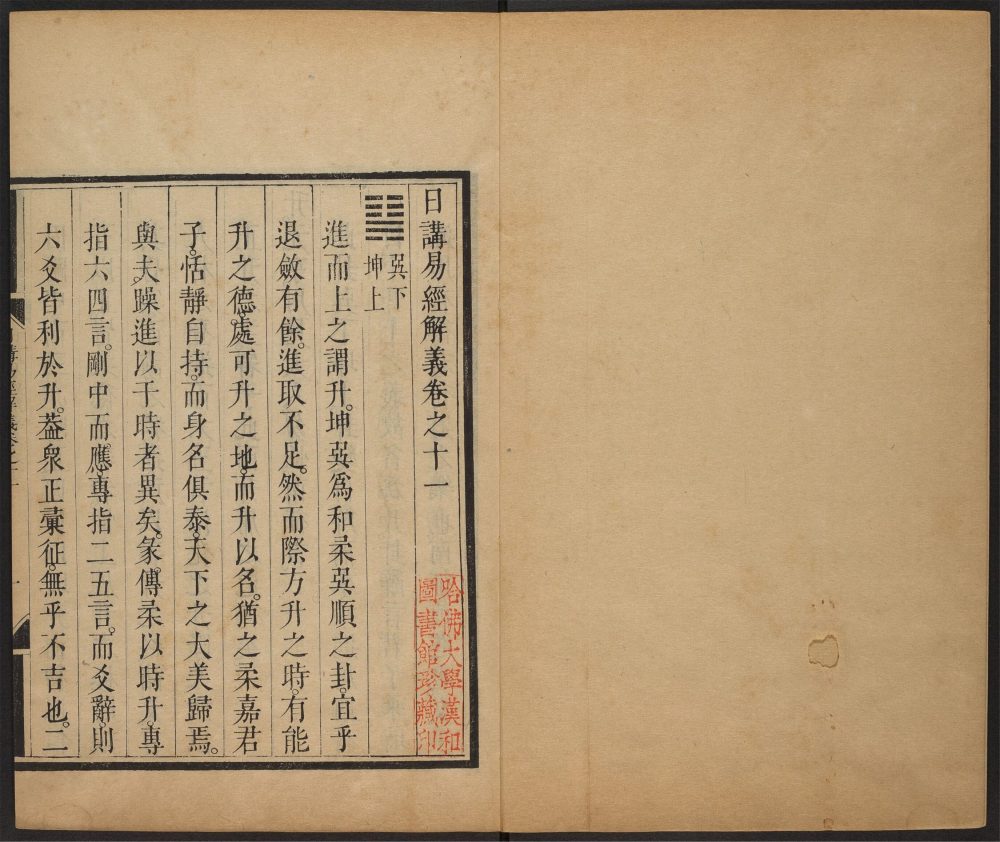 日講易經解義卷之十一
巽下
坤上
進而上之謂升。坤巽爲和柔巽順之卦。宜乎
退斂有餘。進取不足。然而際方升之時。有能
升之德。處可升之地。而升以名。猶之柔嘉君
子。恬靜自持。而身名俱泰。天下之大美歸焉。
與夫躁進以干時者異矣。彖傳柔以時升。專
指六四言。剛中而應。專指二五言。而爻辭。則
六爻皆利於升。葢衆正彙征。無乎不吉也。二
哈佛大學漢和
圖書館珍藏印